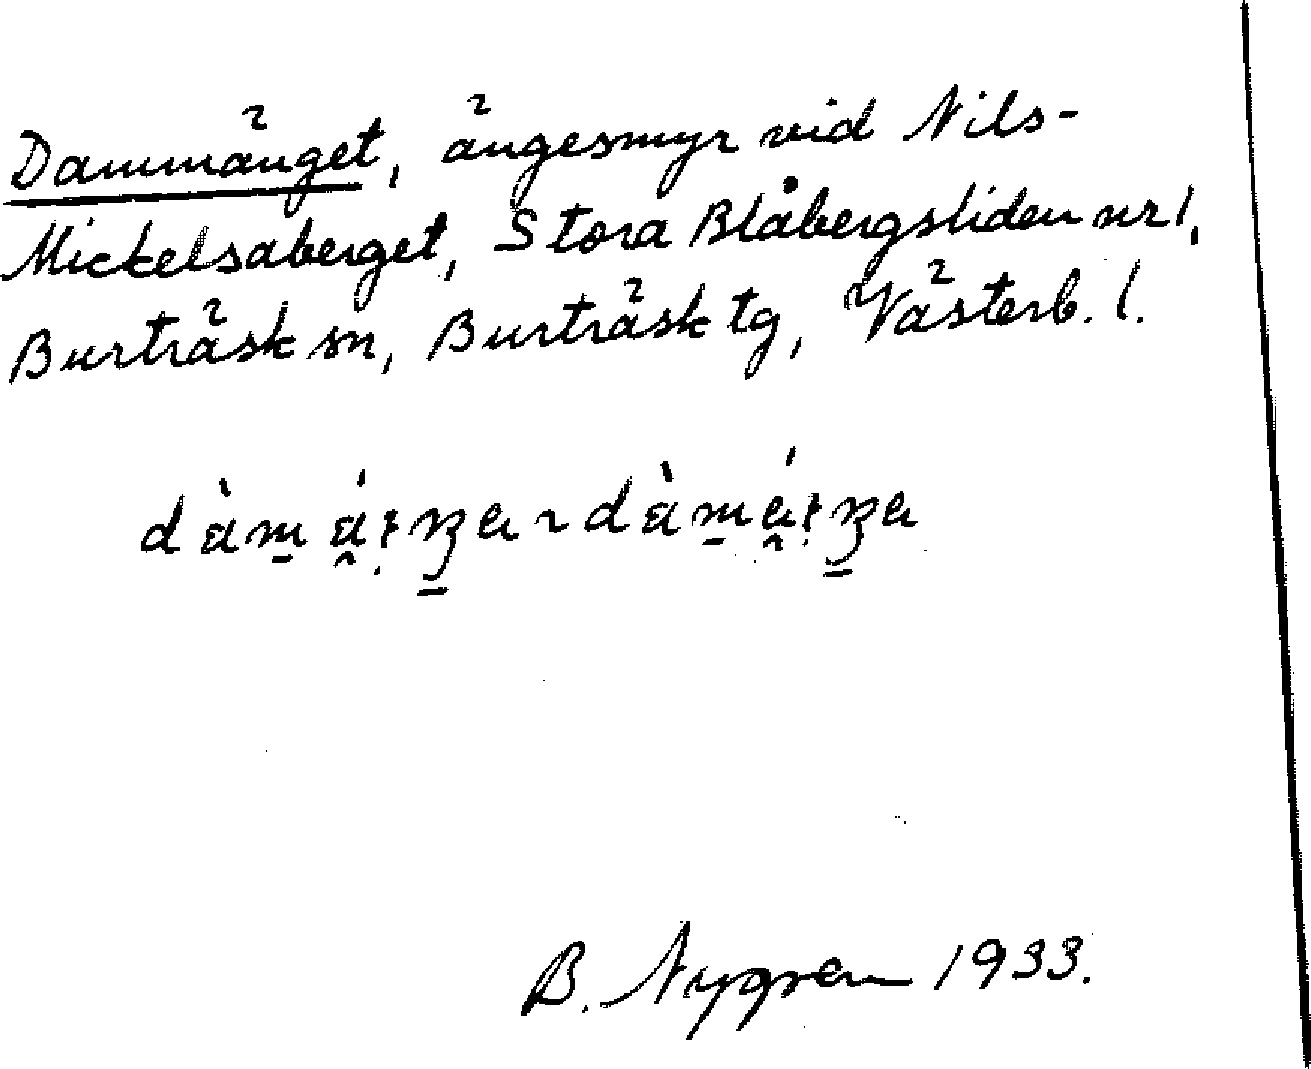 Dammänget, ängesmyr vid Nils-
Mickelsaberget, Stora Blåbergsliden nr 1,
Burträsk sn, Burträsk tg, Västerb. l.
B. Nygren 1933.